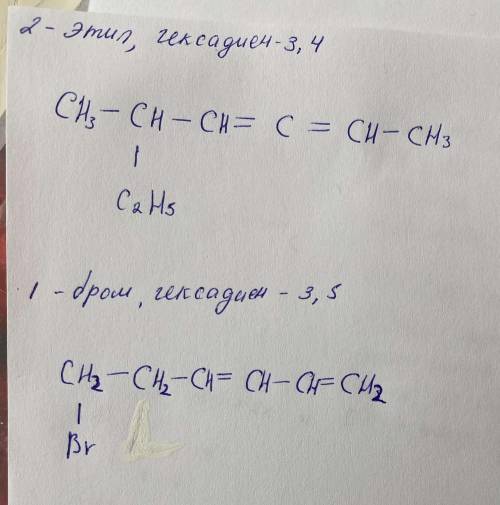 2 - этил, гексадиен-3,4
CH₃ - CH - CH = C = CH - CH₃
|
C₂H₅
1 - бром, гексадиен - 3,5
CH₂ - CH₂ - CH = CH - CH = CH₂
|
Br